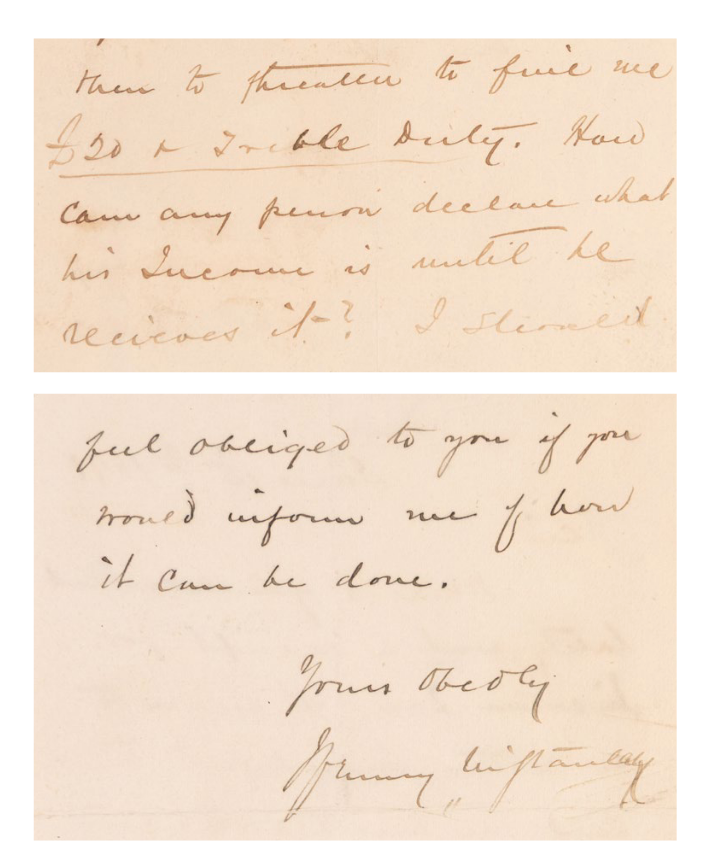 then to threaten to fine me
£20 & Treble Duty. How
can any person declare what
his Income is until he
recieves it? I should
feel obliged to you if you
would inform me of how
it can be done.
Yours Obedly